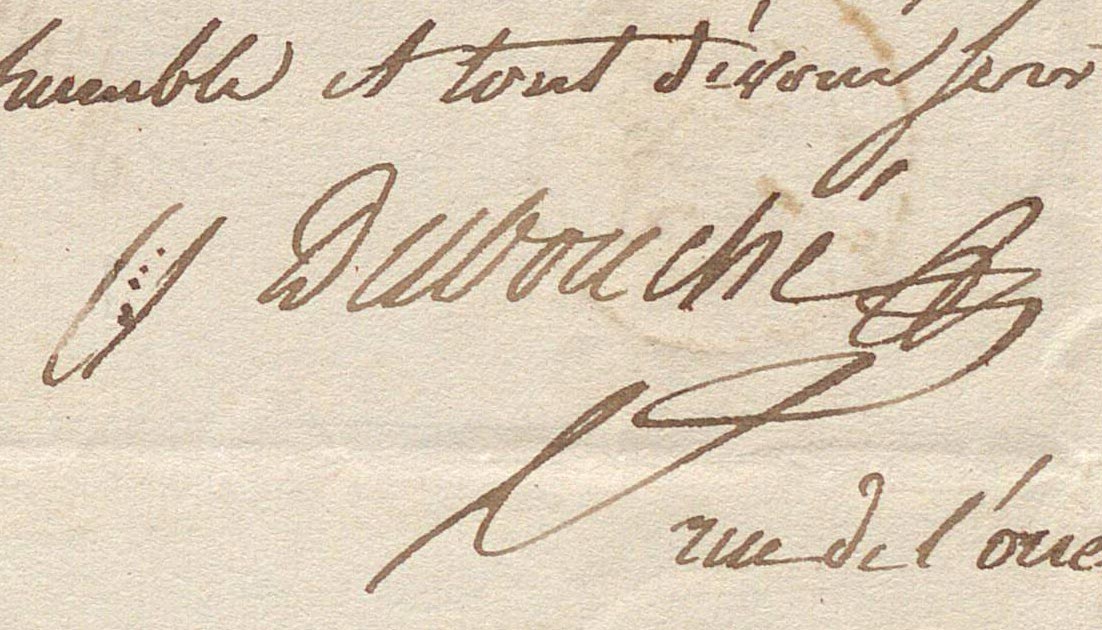 humble et tout dévoué serv
Dubouché
rue de l'oue